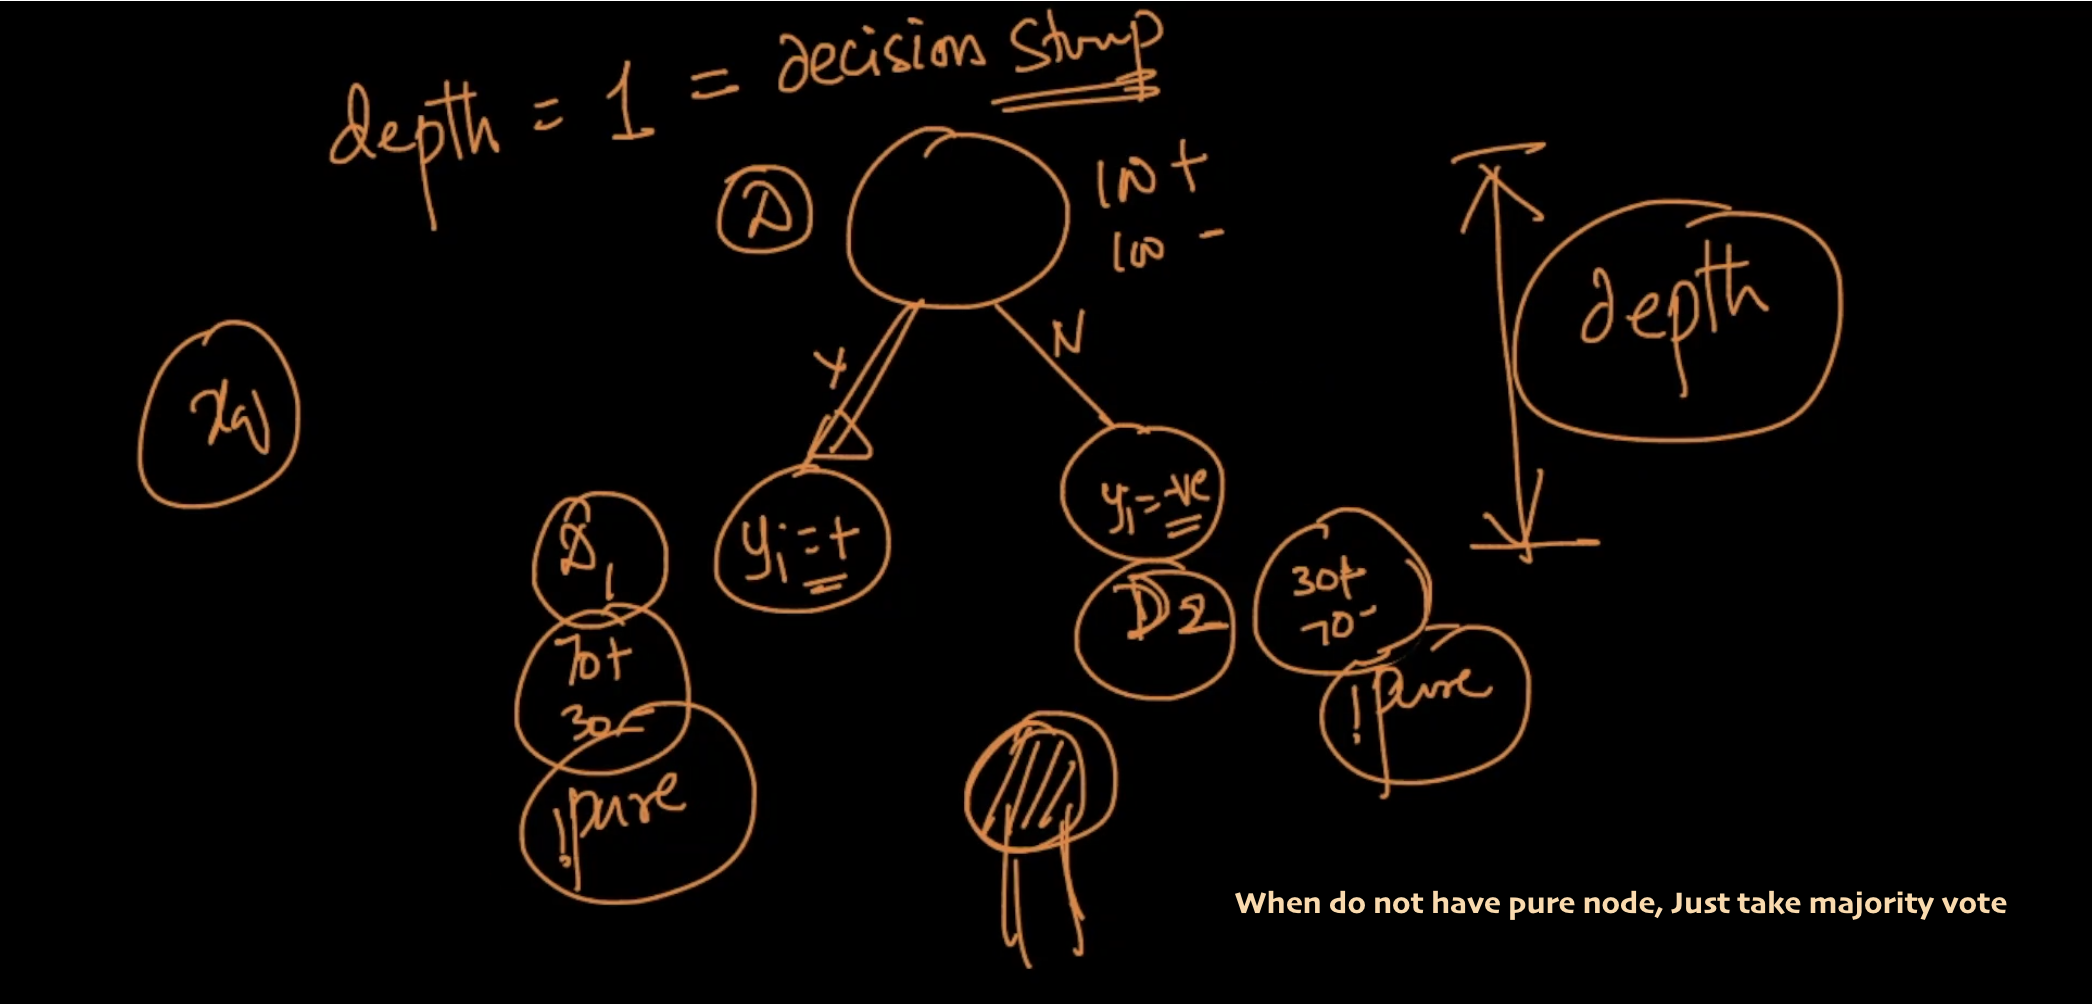 depth = 1 = decision stump
D
100 +
100 -
depth
Y
N
xq
yi = +
yi = -ve
D1
70+
30-
!pure
D2
30+
70-
!pure
When do not have pure node, Just take majority vote